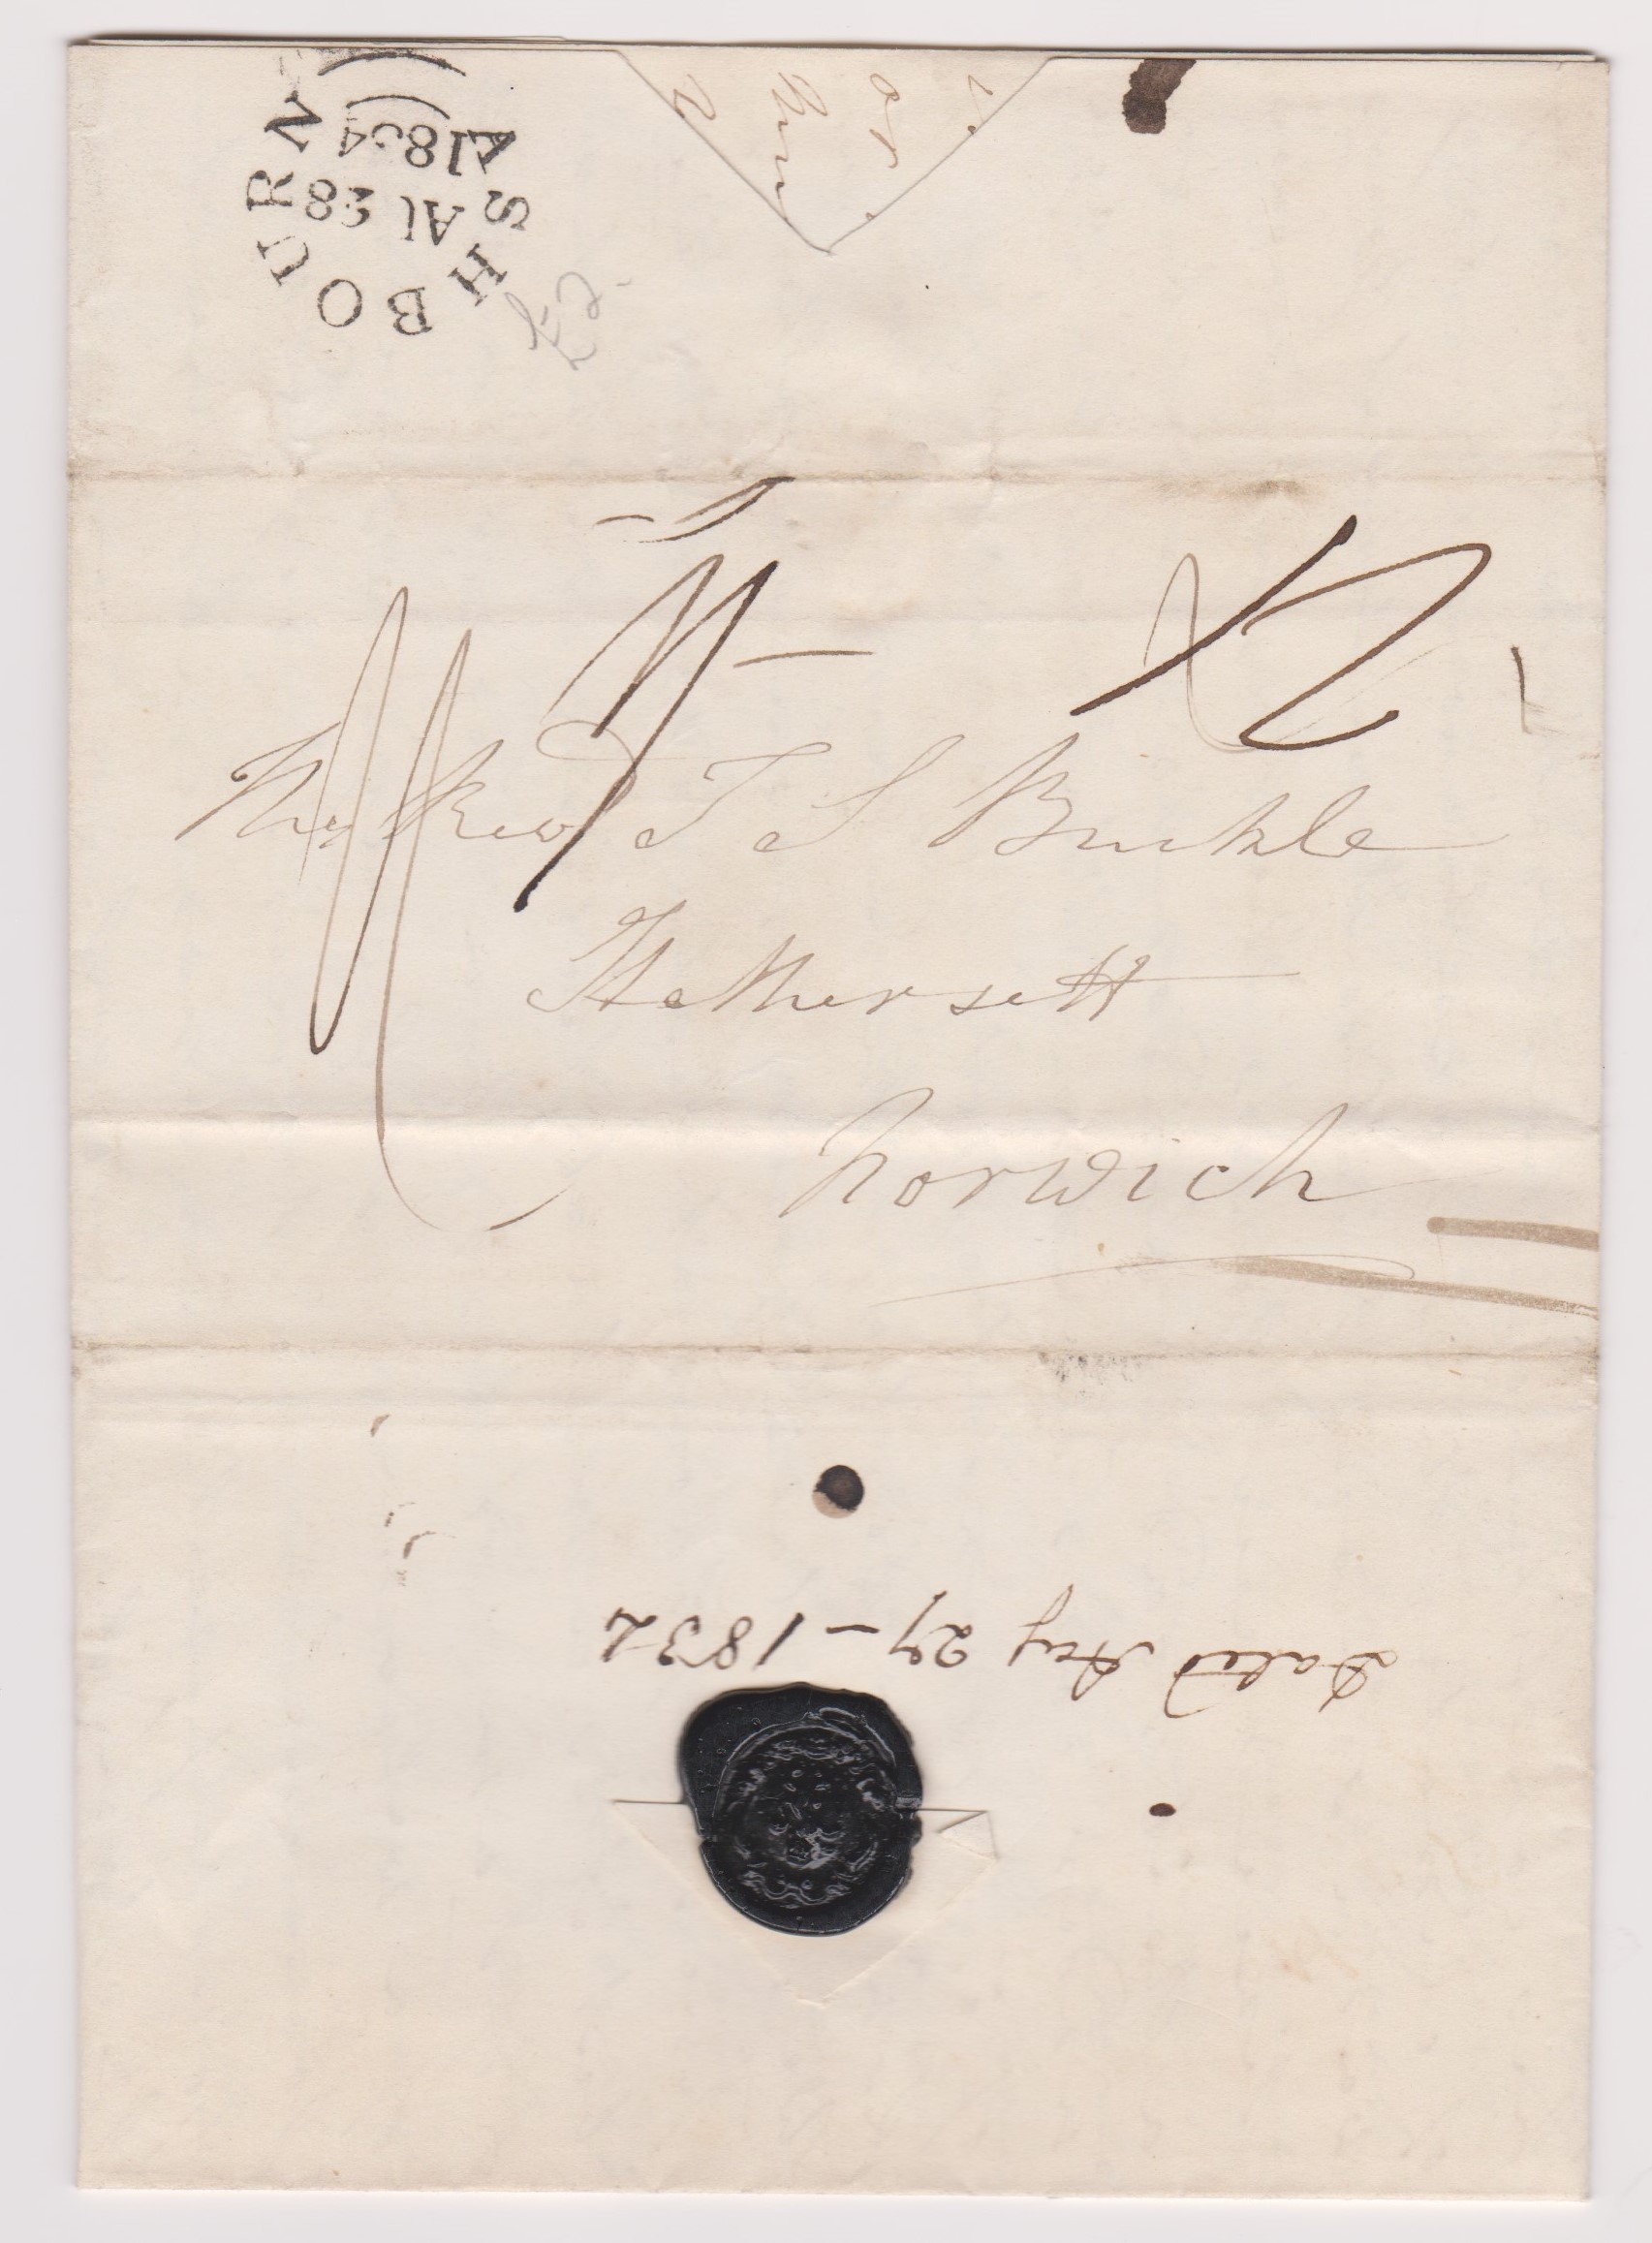 SHBOURN
AU 28
1834
The Revd T S Buckle
Hethersett
Norwich
Dated Aug 27 - 1832